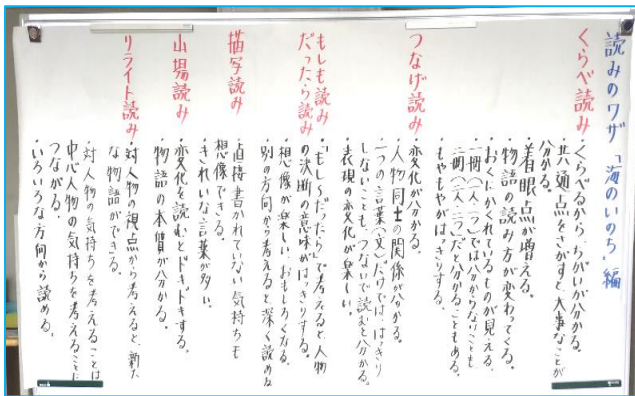 読みのワザ「海のいのち」編
くらべ読み
・くらべるから、ちがいが分かる。
・共通点をさがすと、大事なことが
分かる。
・着眼点が増える。
・物語の読み方が変わってくる。
・おくにかくれているものが見える。
・一冊(一人・一つ)では分からないことも
二冊(二人・二つ)だと分かることもある。
・もやもやがはっきりする。
つなげ読み
・変化が分かる。
・人物同士の関係が分かる。
・一つの言葉(文)だけでは、はっきり
しないことも、つないで読むと分かる。
・表現の変化が楽しい。
もしも読み
だったら読み
・「もし～だったら」で考えると人物
の決断の意味がはっきりする。
・想像が楽しい、おもしろくなる。
・別の方向から考えると深く読める
描写読み
・直接書かれていない気持ちも
想像できる。
・きれいな言葉が多い。
山場読み
・変化を読むとドキドキする。
・物語の本質が分かる。
リライト読み
・対人物の視点から考えると、新た
な物語ができる。
・対人物の気持ちを考えることは
中心人物の気持ちを考えることに
つながる。
・いろいろな方向から読める。